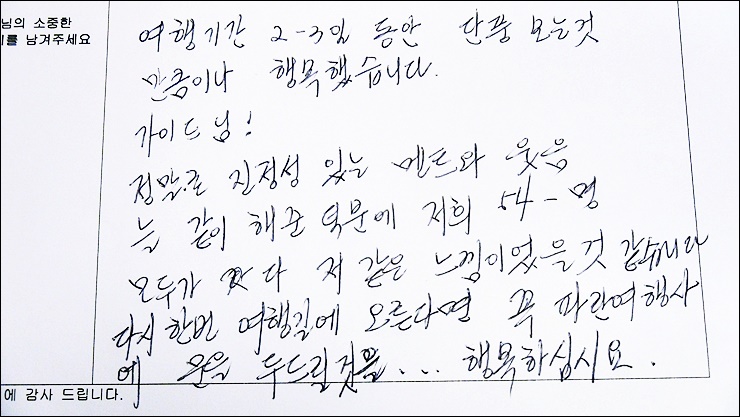 님의 소중한
를 남겨주세요
여행기간 2-3일 동안 단풍 모는것
만큼이나 행복했습니다.
가이드님!
정말로 진정성 있는 멘트와 웃음
늘 같이 해준 덕분에 저희 54-명
모두가 다 저 같은 느낌이었을것 같습니다
다시한번 여행길에 오른다면 꼭 파란여행사
에 문을 두드릴것을... 행복하십시요.
에 감사 드립니다.